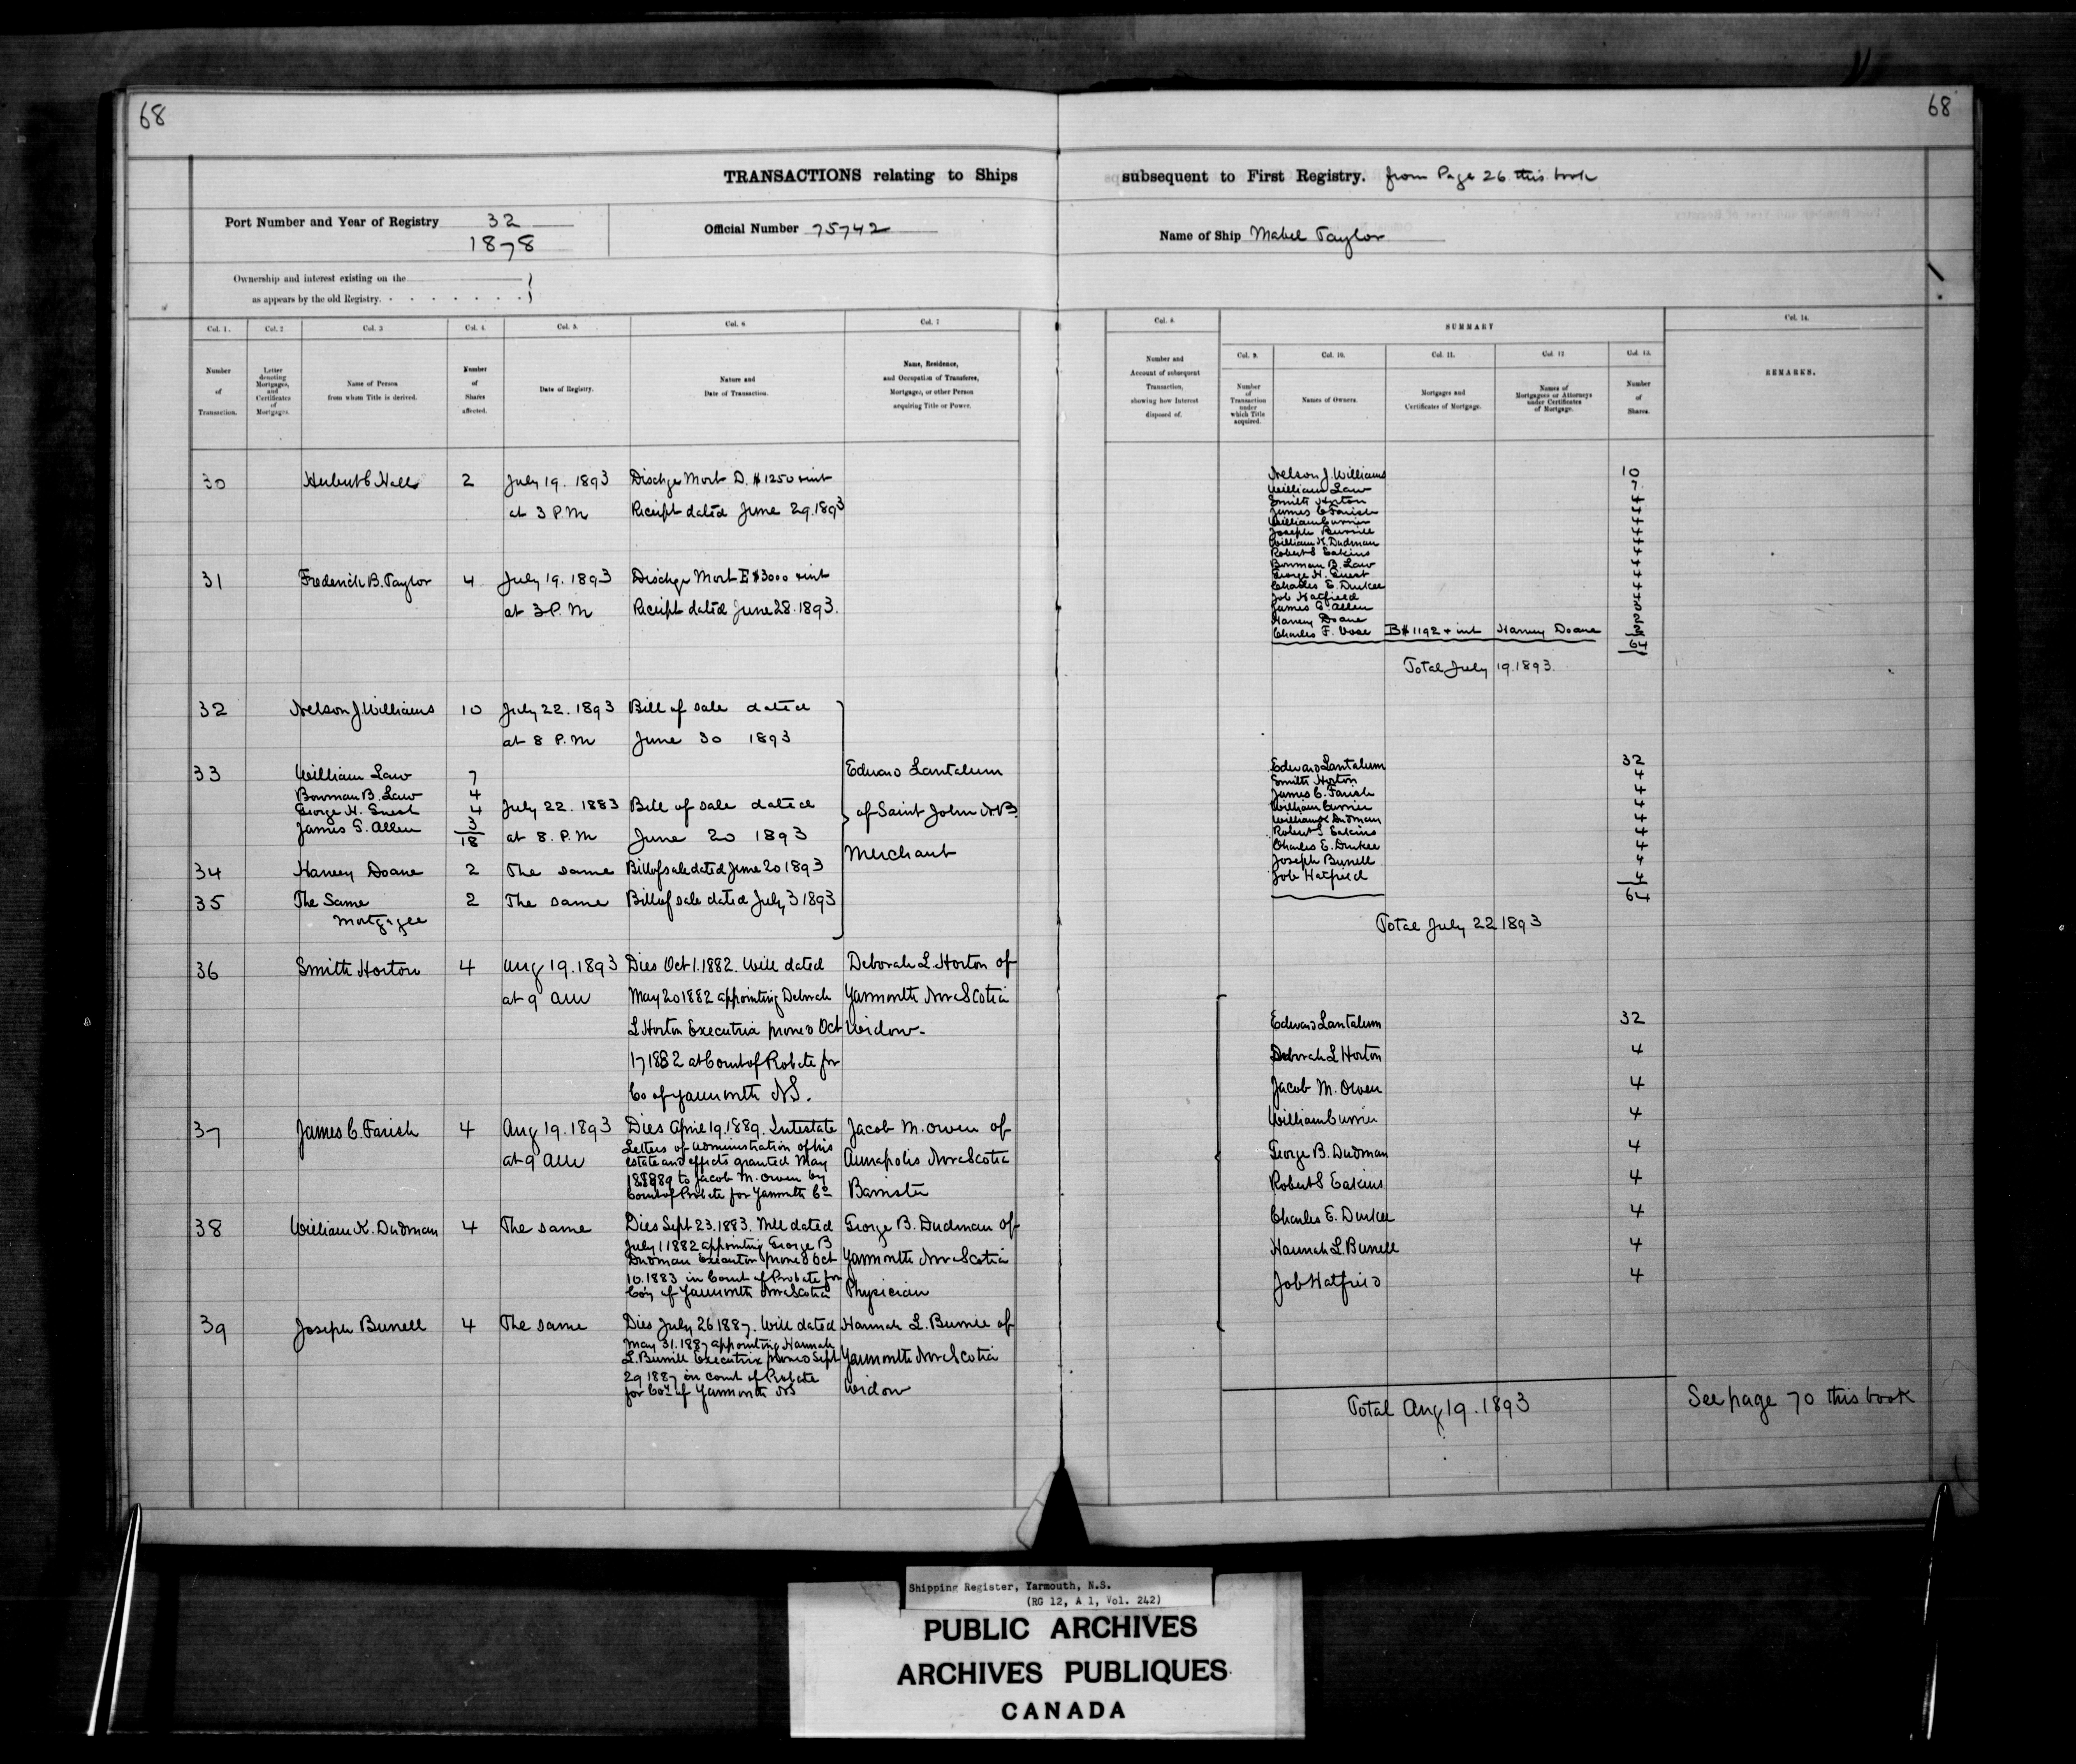 68
68
TRANSACTIONS relating to Ships subsequent to First Registry. from Page 26 this book
Port Number and Year of Registry 32
1878
Official Number 75742
Name of Ship Mabel Taylor
Ownership and interest existing on the
as appears by the old Registry.
Col. 1. Col. 2 Col. 3 Col. 4. Col. 5. Col. 6 Col. 7
Number of Transaction.
Letter denoting Mortgages, and Certificates of Mortgages.
Name of Person from whom Title is derived.
Number of Shares affected.
Date of Registry.
Nature and Date of Transaction.
Name, Residence, and Occupation of Transferee, Mortgagee, or other Person acquiring Title or Power.
Col. 8.
Number and Account of subsequent Transaction, showing how Interest disposed of.
SUMMARY
Col. 9. Col. 10. Col. 11. Col. 12 Col. 13.
Number of Transaction under which Title acquired.
Names of Owners.
Mortgages and Certificates of Mortgage.
Names of Mortgagees or Attorneys under Certificates of Mortgage.
Number of Shares.
Col. 14.
REMARKS.
30 2 July 19. 1893 Dischge Mort D. $1250 + int
at 3 P.M Receipt dated June 29. 1893
31 Frederick B. Taylor 4 July 19. 1893 Dischge Mort E $3000 + int
at 3 P.M Receipt dated June 28. 1893.
32 Nelson J Williams 10 July 22. 1893 Bill of sale dated
at 8 P.M June 30 1893
33 William Law 7
Bowman B. Law 4
George H. Guest 4 July 22. 1883 Bill of sale dated
James G. Allen 3
18 at 8. P.M June 20 1893
34 Harvey Doane 2 The same Bill of sale dated June 20 1893
35 The Same 2 The same Bill of sale dated July 3 1893
Mortgagee
Edward Lantalum
of Saint John N.B.
Merchant
36 Smith Horton 4 Aug 19. 1893 Dies Oct 1. 1882. Will dated Deborah L. Horton of
at 9 am May 20 1882 appointing Deborah Yarmouth Nova Scotia
L Horton Executrix proved Oct Widow.
17 1882 at Court of Probate for
Co of Yarmouth NS.
37 James C. Farish 4 Aug 19. 1893 Dies April 19. 1889. Intestate Jacob M. Owen of
at 9 am Letters of Administration of his
estate and effects granted May Annapolis Nova Scotia
to Jacob M. Owen by
Court of Probate for Yarmouth Co Barrister
38 William K. Dudman 4 The same Dies Sept 23. 1883. Will dated George B. Dudman of
July 1 1882 appointing George B
Dudman Executor proved Oct Yarmouth Nova Scotia
10. 1883 in Court of Probate for
Coy of Yarmouth Nova Scotia Physician
39 Joseph Burrell 4 The same Dies July 26 1887. Will dated Hannah L. Burrell of
May 31. 1887 appointing Hannah
L. Burrill Executrix proved Sept Yarmouth Nova Scotia
29 1887 in court of Probate
for Coy of Yarmouth NS Widow
Nelson J. Williams 10
William Law 7
Smith Horton 4
James C Farish 4
William Currier 4
Joseph Burrill 4
William K. Dudman 4
Robert S Eakins 4
Bowman B. Law 4
George H. Guest 4
Charles E. Durkee 4
Job Hatfield 4
James G. Allen 3
Harvey Doane 2
Charles F. Vose B $1192 + int Harvey Doane 2
64
Total July 19. 1893.
Edward Lantalum 32
Smith Horton 4
James C. Farish 4
William Currier 4
William K Dudman 4
Robert S Eakins 4
Charles E. Durkee 4
Joseph Burrell 4
Job Hatfield 4
64
Total July 22 1893
Edward Lantalum 32
Deborah L Horton 4
Jacob M. Owen 4
William Currier 4
George B. Dudman 4
Robert S Eakins 4
Charles E. Durkee 4
Hannah L. Burrell 4
Job Hatfield 4
Total Aug 19. 1893 See page 70 this book
Shipping Register, Yarmouth, N.S.
(RG 12, A 1, Vol. 242)
PUBLIC ARCHIVES
ARCHIVES PUBLIQUES
CANADA